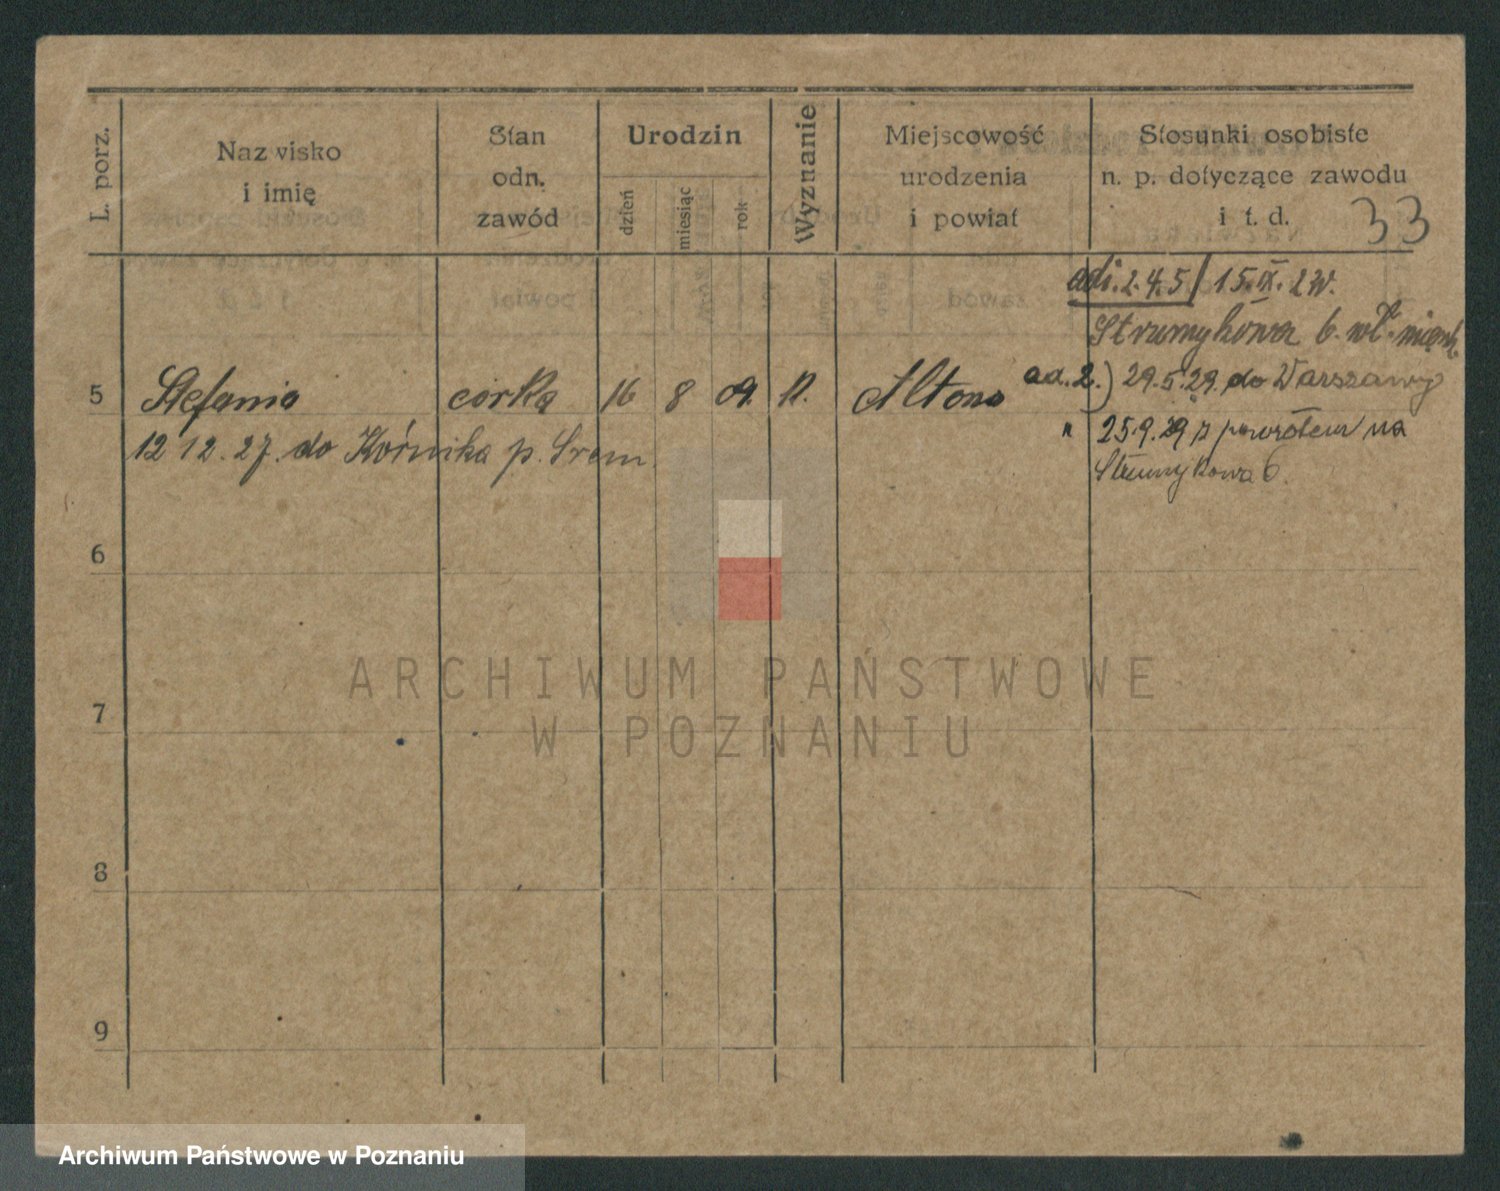 L. porz.
Nazwisko
i imię
Stan
odn.
zawód
Urodzin
dzień
miesiąc
rok
Wyznanie
Miejscowość
urodzenia
i powiat
Stosunki osobiste
n. p. dotyczące zawodu
i t. d.
33
2.4.5/ 15.IX.
Strumykowa 6.
5 Stefania córka 16 8 09. Altona
ad. 2.) 29.5.29. do Warszawy
12 12. 27. do Kórnika p. Śrem
" 25.9.29 z powrotem na
Strumykowa 6.
6
7
8
9
ARCHIWUM PAŃSTWOWE
W POZNANIU
Archiwum Państwowe w Poznaniu